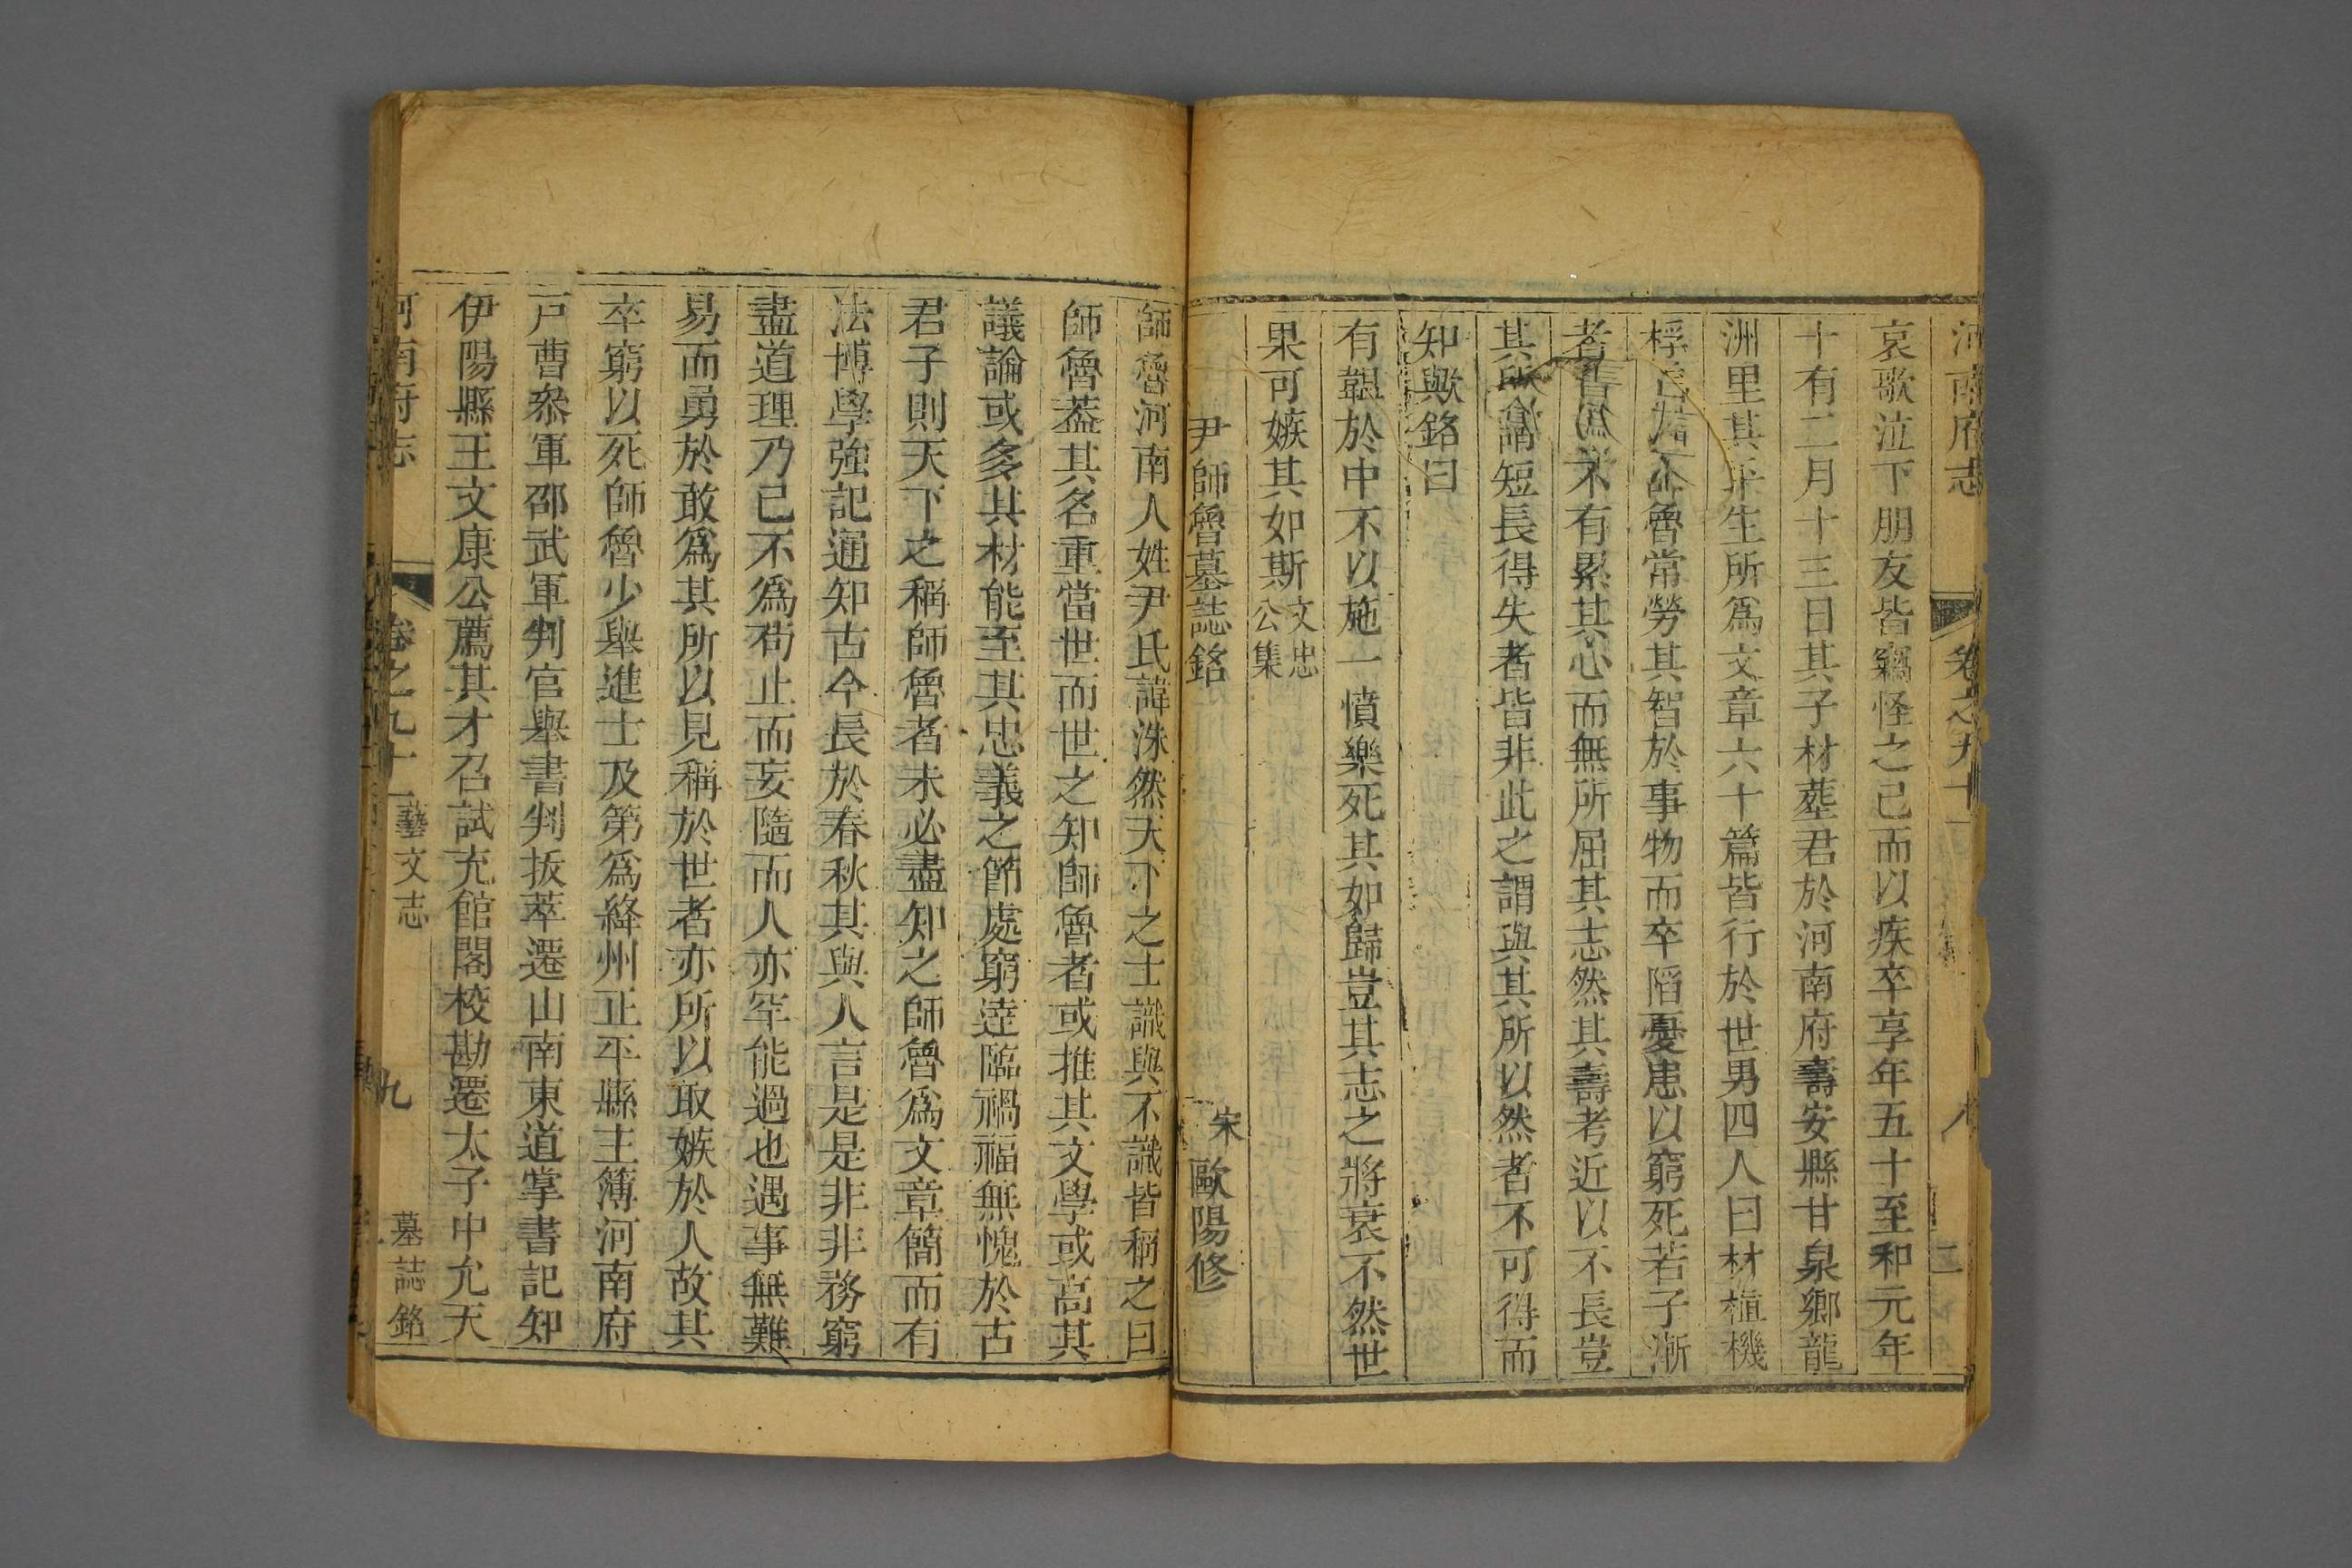 河南府志
卷之九十一
八
哀歌泣下朋友皆竊怪之已而以疾卒享年五十至和元年
十有二月十三日其子材葬君於河南府壽安縣甘泉鄉龍
洲里其平生所爲文章六十篇皆行於世男四人曰材植機
桴 師魯常勞其智於事物而卒陷憂患以窮死若子漸
者 不有累其心而無所屈其志然其壽考近以不長豈
其所謂短長得失者皆非此之謂與其所以然者不可得而
知歟銘曰
有韞於中不以施一憤樂死其如歸豈其志之將衰不然世
果可嫉其如斯文忠公集
尹師魯墓誌銘 宋歐陽修
師魯河南人姓尹氏諱洙然天下之士識與不識皆稱之曰
師魯葢其名重當世而世之知師魯者或推其文學或高其
議論或多其材能至其忠義之節處窮逹臨禍福無愧於古
君子則天下之稱師魯者未必盡知之師魯爲文章簡而有
法博學強記通知古今長於春秋其與人言是是非非務窮
盡道理乃已不爲苟止而妄隨而人亦罕能過也遇事無難
易而勇於敢爲其所以見稱於世者亦所以取嫉於人故其
卒窮以死師魯少舉進士及第爲絳州正平縣主簿河南府
戸曹叅軍邵武軍判官舉書判拔萃遷山南東道掌書記知
伊陽縣王文康公薦其才召試充館閣校勘遷太子中允天
河南府志
卷之九十一
藝文志
九
墓誌銘